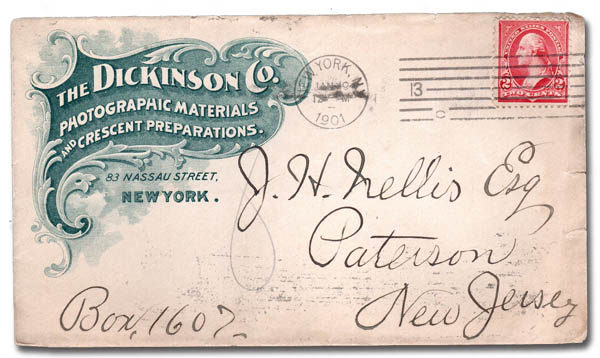 THE DICKINSON CO.
PHOTOGRAPHIC MATERIALS
AND CRESCENT PREPARATIONS.
83 NASSAU STREET,
NEW YORK.
NEW YORK, N.
JAN
1901
13
UNITED STATES POSTAGE
2 2
TWO CENTS
J. H. Nellis Esq
Paterson
New Jersey
Box, 1607